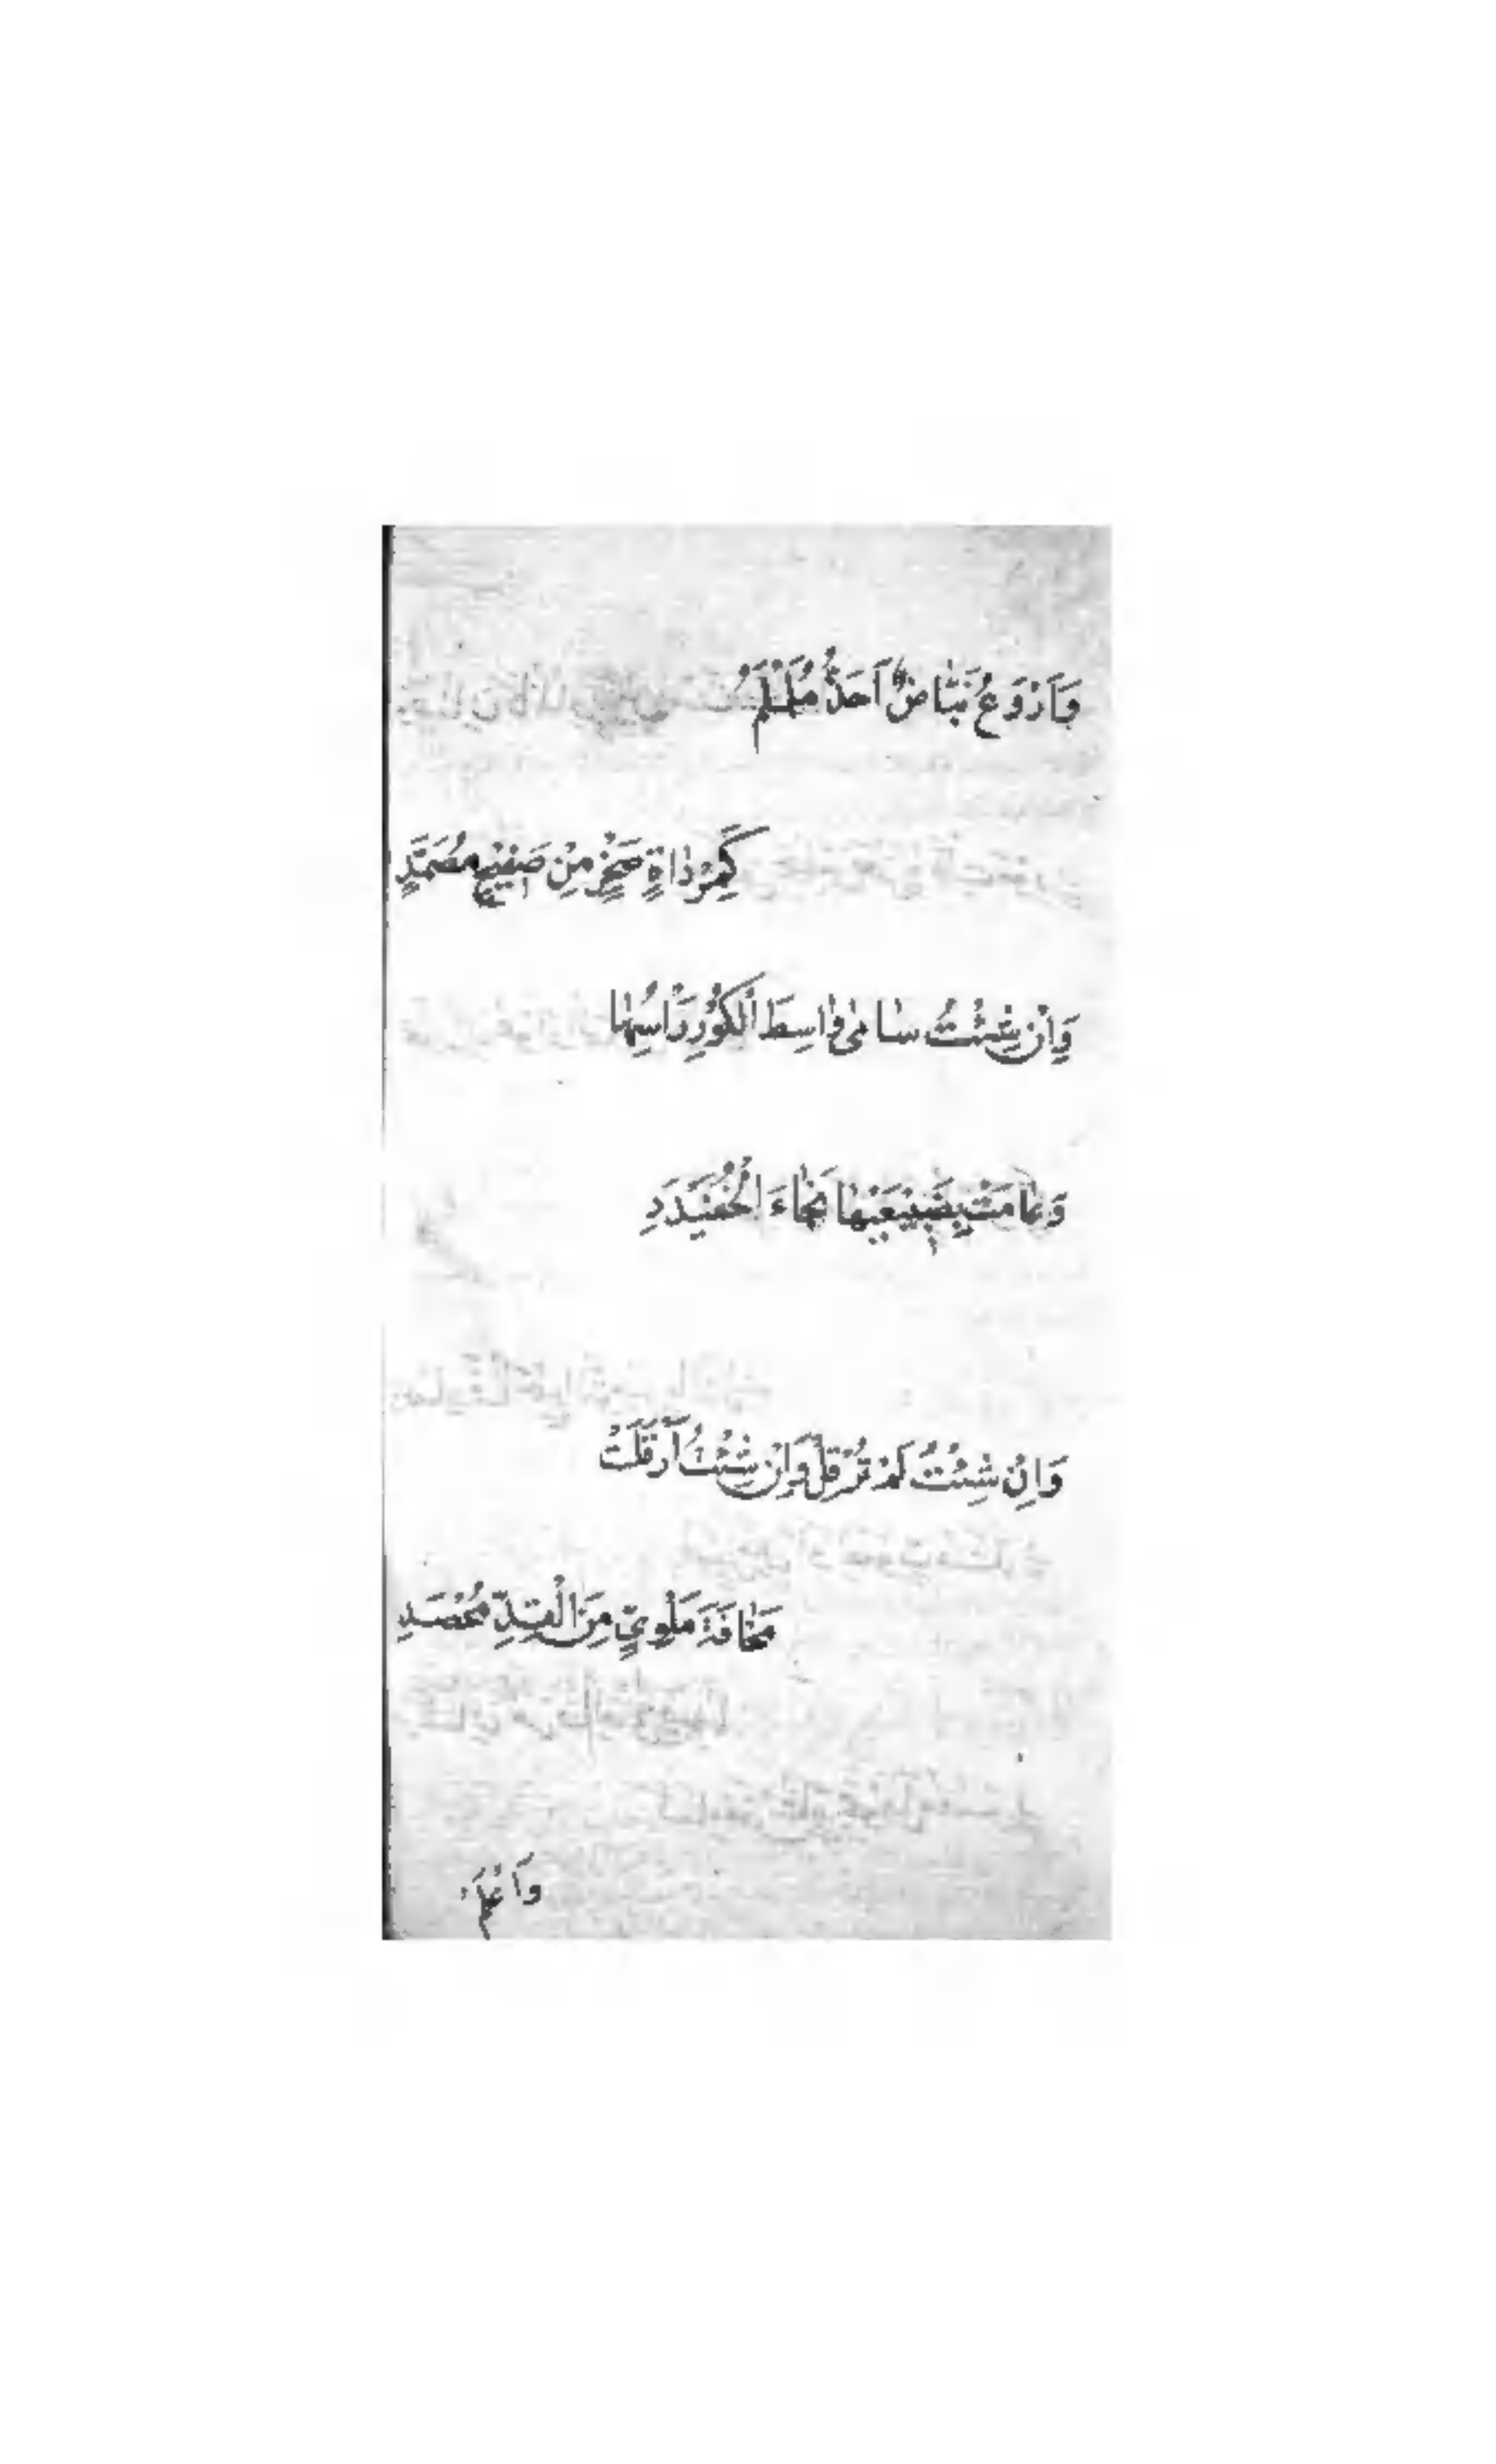 وَاَرْوَعُ نَبَّاضٌ اَحَذُّ مُلَمْلَمٌ
كَمِرْدَاةِ صَخْرٍ مِنْ صَفِيحٍ مُصَمَّدٍ
وَاِنْ شِئْتُ سامى وَاسِطَ الْكُوْرِ رَاْسُهَا
وَعَامَتْ بِضَبْعَيْهَا نَجَاءَ الْخُفَيْدَدِ
وَاِنْ شِئْتُ لَمْ تُرْقِلْ وَاِنْ شِئْتُ اَرْقَلَتْ
مَخَافَةَ مَلْوِيٍّ مِنَ الْقِدِّ مُحْصَدِ
وَاَعْلَمُ